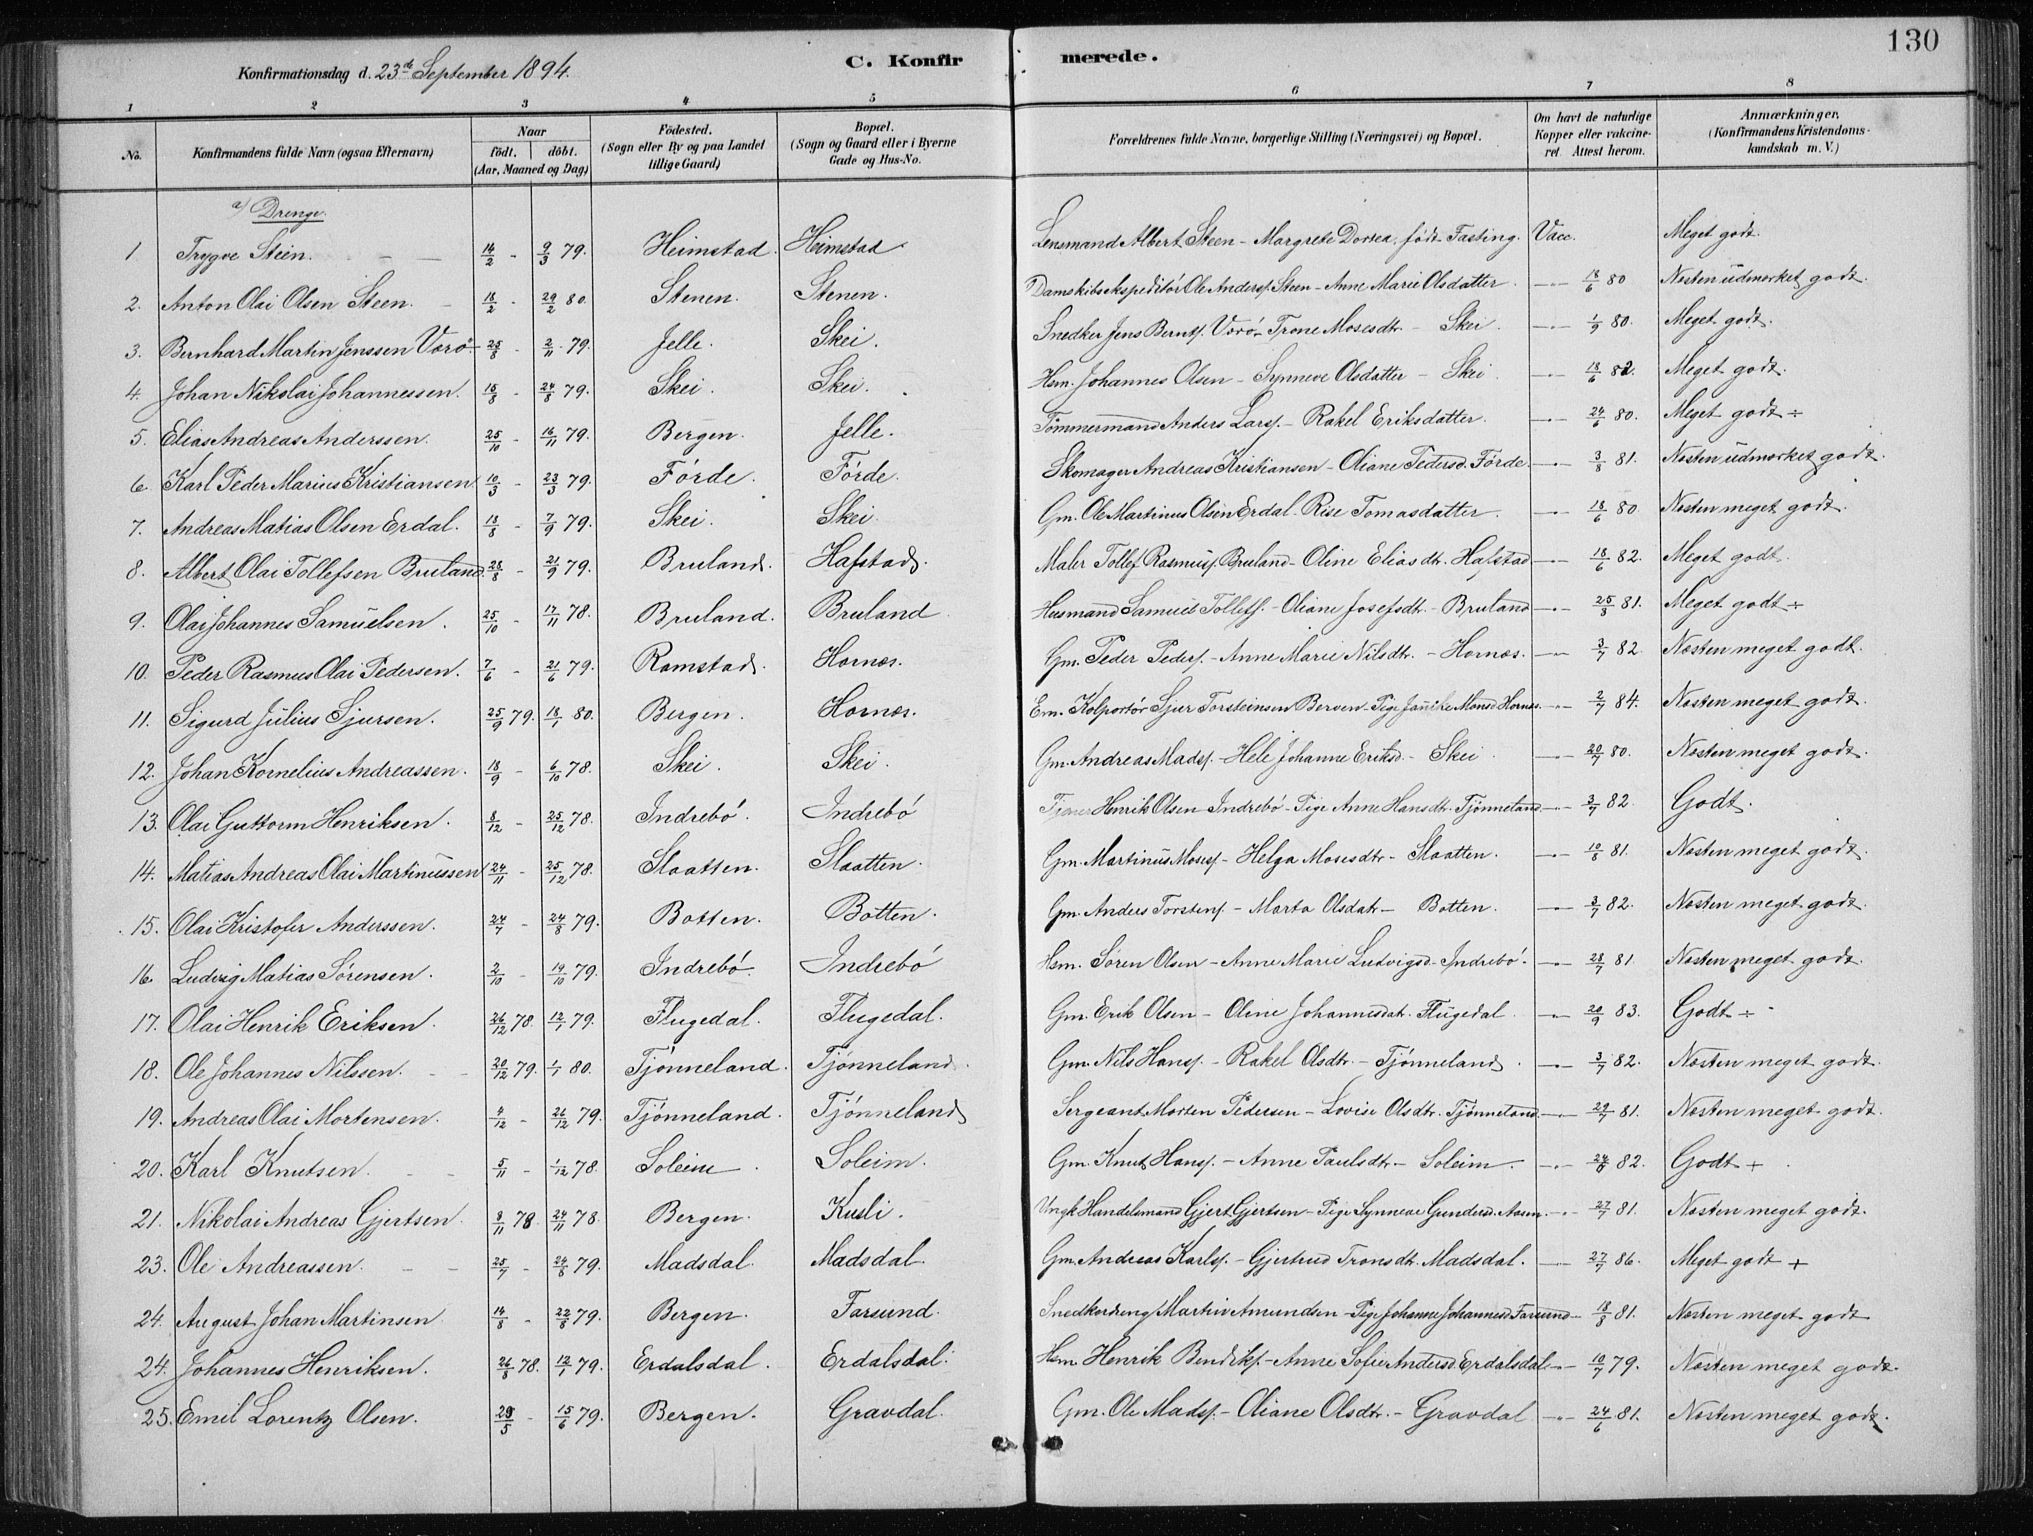 130
Konfirmationsdag d. 23de September 1894.
C. Konfirmerede.
1 2 3 4 5 6 7 8
No.
Konfirmandens fulde Navn (ogsaa Efternavn)
Naar födt. döbt. (Aar, Maaned og Dag)
Födested. (Sogn eller By og paa Landet tillige Gaard)
Bopæl. (Sogn og Gaard eller i Byerne Gade og Hus-No.
Forældrenes fulde Navne, borgerlige Stilling (Næringsvei) og Bopæl.
Om havt de naturlige Kopper eller vakcineret. Attest herom.
Anmærkninger. (Konfirmandens Kristendomskundskab m. V.)
a) Drenge.
1 Trygve Steen. 14/2 - 9/3 79. Heimstad. Heimstad Lensmand Albert Steen - Margrete Dortea, födt Fasting. Vacc. Meget godt.
2. Anton Olai Olsen Steen. 18/2 - 29/2 80. Stenen. Stenen. Damskibsekspeditör Ole Anders. Steen - Anne Marie Olsdatter. 18/6 80 Næsten udmærket godt.
3. Bernhard Martin Jenssen Vorö 25/8 - 2/11 79. Jelle. Skei. Snedker Jens Bernts. Vorö - Trone Mosesdtr - Skei. 1/9 80. Meget godt.
4. Johan Nikolai Johannessen. 15/8 - 24/8 79. Skei. Skei. Hsm. Johannes Olsen - Synneve Olsdatter - Skei. 18/6 82. Meget godt.
5. Elias Andreas Anderssen. 25/10 - 16/11 79. Bergen. Jelle. Tömmermand Anders Lars. - Rakel Eriksdatter. 24/6 80. Meget godt ÷
6. Karl Peder Marius Kristiansen 10/3 - 23/3 79. Förde. Förde. Skomager Andreas Kristiansen - Oliane Pedersd. Förde. 3/8 81. Næsten udmærket godt.
7. Andreas Matias Olsen Erdal. 18/8 - 7/9 79. Skei. Skei. Gm. Ole Martinus Olsen Erdal - Rise Tomasdatter. 18/6 80. Næsten meget godt.
8. Albert Olai Tollefsen Bruland 28/8 - 21/9 79. Bruland. Hafstad. Maler Tollef Rasmus. Bruland - Oline Eliasdtr. Hafstad 18/6 82. Meget godt.
9. Olai Johannes Samuelsen. 25/10 - 17/11 78. Bruland. Bruland Husmand Samuel Tollefs. - Oliane Josefsdtr. - Bruland 25/8 81. Meget godt ÷
10. Peder Rasmus Olai Pedersen. 7/6 - 21/6 79. Ramstad. Hornæs. Gm. Peder Peders. - Anne Marie Nilsdtr. - Hornæs. 3/7 82. Næsten meget godt.
11. Sigurd Julius Sjursen. 25/9 79. 18/1 80. Bergen. Hornæs. Em. Kolportör Sjur Torsteinsen Berven - Pige Janike Monsd Hornæs. 2/7 84. Næsten meget godt.
12. Johan Kornelius Andreassen. 18/9 - 6/10 78. Skei. Skei. Gm. Andreas Mads. - Hele Johanne Eriksd. - Skei 20/7 80. Næsten meget godt.
13. Olai Guttorm Henriksen. 8/12 - 25/12 78. Indrebö. Indrebö Tjener Henrik Olsen Indrebö - Pige Anne Hansdtr. Tjönneland 3/7 82. Godt.
14. Matias Andreas Olai Martinussen 24/11 - 25/12 78. Slaatten. Slaatten. Gm. Martinus Moses. - Helga Mosesdtr. - Slaatten. 10/8 81. Næsten meget godt.
15. Olai Kristofer Anderssen. 24/7 - 24/8 79. Botten. Botten. Gm. Anders Torstens. - Marta Olsdatr - Botten. 3/7 82. Næsten meget godt.
16. Ludvig Matias Sörensen. 2/10 - 19/10 79. Indrebö. Indrebö Hsm. Sören Olsen - Anne Marie Ludvigsd - Indrebö. 28/7 81. Næsten meget godt.
17. Olai Henrik Eriksen. 26/12 78. 12/1 79. Flugedal. Flugedal. Gm. Erik Olsen - Oline Johannesdat. Flugedal. 20/9 83. Godt ÷
18. Ole Johannes Nilssen. 20/12 79. 1/1 80. Tjönneland. Tjönneland. Gm. Nils Hans. - Rakel Olsdtr. - Tjönneland. 3/7 82. Næsten meget godt.
19. Andreas Olai Mortensen. 4/12 - 26/12 79. Tjönneland. Tjönneland Sergeant Morten Pedersen - Lovise Olsdtr. Tjönneland 29/7 81. Næsten meget godt.
20. Karl Knutsen. 5/11 - 1/12 78. Soleim. Soleim. Gm. Knut Hans. - Anne Paulsdtr. - Soleim. 24/8 82. Godt +
21. Nikolai Andreas Gjertsen. 8/11 78. 24/11 78. Bergen. Kusli. Ungk Handelsmand Gjert Gjertsen - Pige Synneve Gundersd. Aasen. 27/7 81. Næsten meget godt.
23. Ole Andreassen. 25/7 - 24/8 79. Madsdal. Madsdal. Gm. Andreas Karls. - Gjertrud Tronsdtr. Madsdal. 27/7 86. Meget godt +
24. August Johan Martinsen 14/8 - 22/8 79. Bergen. Farsund. Snedkerdreng Martin Amundsen - Pige Johanne Johannesd Farsund 18/8 81. Næsten meget godt
24. Johannes Henriksen. 26/8 78. 12/1 79. Erdalsdal. Erdalsdal. Hsm Henrik Bendiks. - Anne Sofie Andersd Erdalsdal 10/7 79. Næsten meget godt.
25. Emil Lorentz Olsen. 29/5 - 15/6 79. Bergen. Gravdal. Gm. Ole Mads. - Oliane Olsdtr. - Gravdal 24/6 81. Næsten meget godt.